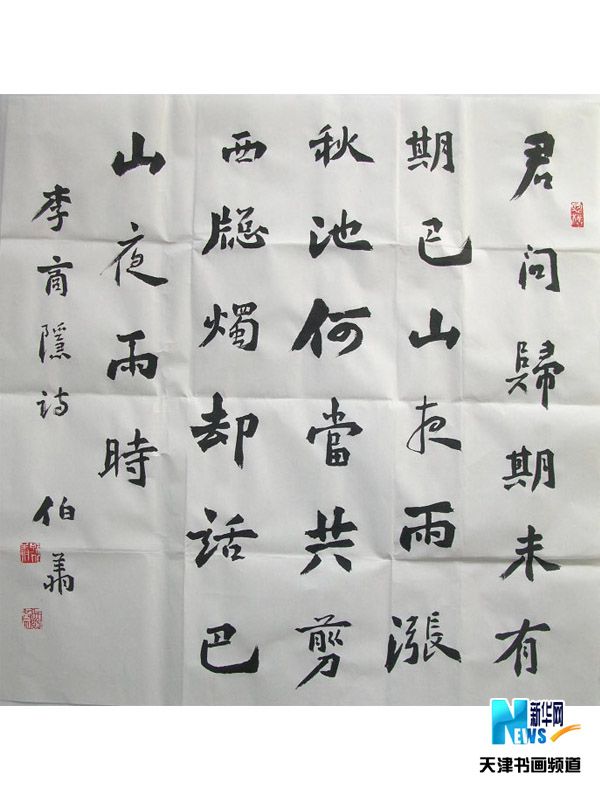 君問歸期未有
期巴山夜雨漲
秋池何當共剪
西牕燭却話巴
山夜雨時
李商隱詩 伯
NEWS 新华网
天津书画频道